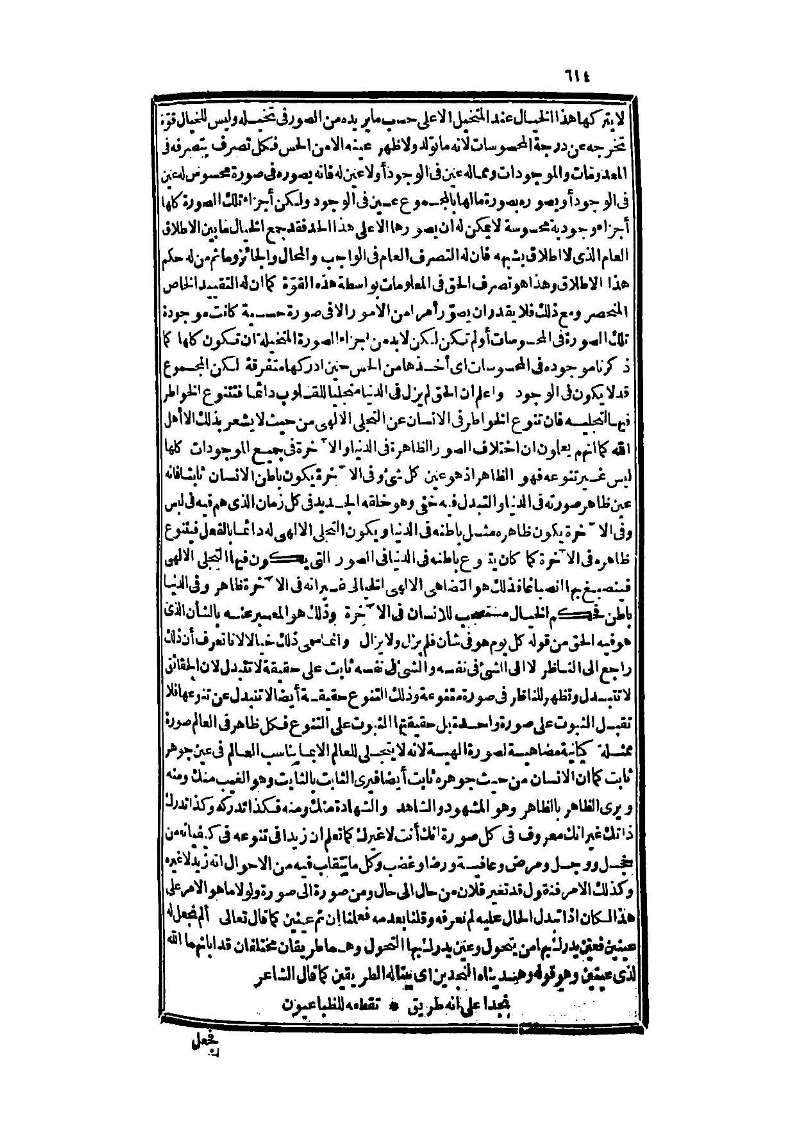 ٦١٤
لا يتركها هذا الخيال عند المتخيل الا على حسب ما يريده من الصور فى تخيله وليس للخيال قوة
تخرجه عن درجة المحسوسات لانه ما تولد ولا ظهر عينه الا من الحس فكل تصرف يتصرفه فى
المعدومات والموجودات ومما له عين فى الوجود أو لا عين له فانه يصوره فى صورة محسوس له عين
فى الوجود أو يصوره بصورة ما لها بالمجموع عين فى الوجود ولكن أجزاء تلك الصورة كلها
أجزاء وجودية محسوسة لا يمكن له ان يصورها الا على هذا الحد فقد جمع الخيال ما بين الاطلاق
العام الذى لا اطلاق يشبهه فان له التصرف العام فى الواجب والمحال والجائز وما ثم من له حكم
هذا الاطلاق وهذا هو تصرف الحق فى المعلومات بواسطة هذه القوة كما ان له التقييد الخاص
المنحصر ومع ذلك فلا يقدر ان يصوّر أمرا من الأمور الا فى صورة حسية كانت موجودة
تلك الصورة فى المحسوسات أو لم تكن لكن لا بد من اجزاء الصورة المتخيلة ان تكون كلها كما
ذكرنا موجودة فى المحسوسات اى أخذها من الحس حين ادركها متفرقة لكن المجموع
قد لا يكون فى الوجود واعلم ان الحق لم يزل فى الدنيا متجليا للقلوب دائما فتتنوع الخواطر
فيها لتجليه فان تنوع الخواطر فى الانسان عن التجلى الالهى من حيث لا يشعر بذلك الا أهل
الله كما انهم يعلون ان اختلاف الصور الظاهرة فى الدنيا والآخرة فى جميع الموجودات كلها
ليس غير تنوعه فهو الظاهر اذ هو عين كل شئ وفى الآخرة يكون باطن الانسان ثابتا فانه
عين ظاهر صورته فى الدنيا والتبدل فيه خفى وهو خلقه الجديد فى كل زمان الذى هم فيه فى لبس
وفى الآخرة يكون ظاهره مثل باطنه فى الدنيا ويكون التجلى الالهى له دائما بالفعل فيتنوع
ظاهره فى الآخرة كما كان يتنوع باطنه فى الدنيا فى الصور التى يكون فيها التجلى الالهى
فينصبغ بها انصباغا فذلك هو التضاهى الالهى الخيالى غير انه فى الآخرة ظاهر وفى الدنيا
باطن فحكم الخيال مستصحب للانسان فى الآخرة وذلك هو المعبر عنه بالشأن الذى
هو فيه الحق من قوله كل يوم هو فى شأن فلم يزل ولا يزال وانما سمى ذلك خيالا لانا نعرف أن ذلك
راجع الى الناظر لا الى الشئ فى نفسه والشئ فى نفسه ثابت على حقيقة لا تتبدل لان الحقائق
لا تتبدل وتظهر للناظر فى صورة متنوعة وذلك التنوع حقيقة أيضا لا تتبدل عن تنوعها فلا
تقبل الثبوت على صورة واحدة بل حقيقتها الثبوت على التنوع فكل ظاهر فى العالم صورة
ممثلة كيانية مضاهية لصورة الهية لانه لا يتجلى للعالم الا بما يناسب العالم فى عين جوهر
ثابت كما ان الانسان من حيث جوهره ثابت أيضا فيرى الثابت بالثابت وهو الغيب منك ومنه
ويرى الظاهر بالظاهر وهو المشهود والشاهد والشهادة منك ومنه فكذا تدركه وكذا تدرك
ذاتك غير انك معروف فى كل صورة انك أنت لا غيرك كما تعلم ان زيدا فى تنوعه فى كيفياته من
خجل ووجل ومرض وعافية ورضا وغضب وكل ما يتقلب فيه من الاحوال انه زيد لا غيره
وكذلك الامر فنقول قد تغير فلان من حال الى حال ومن صورة الى صورة ولولا ما هو الامر على
هذا لكان اذا تبدل الحال عليه لم نعرفه وقلنا بعدمه فعلنا ان ثم عينين كما قال تعالى ألم نجعل له
عينين فعين يدرك بها من يتحول وعين يدرك بها التحول وهما طريقان مختلفان قد ابانهما الله
لذى عينين وهو قوله وهديناه النجدين اى بيناله الطريقين كما قال الشاعر
نجدا على انه طريق * تقطعه للظبا عيون
فجعل